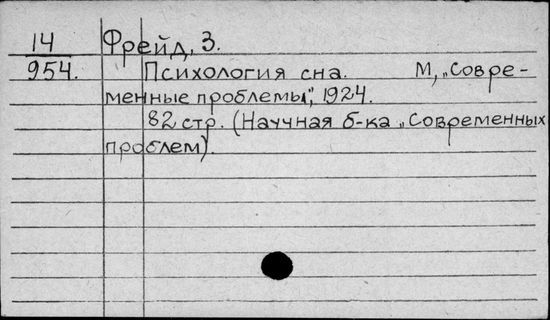 14 Фрейд, З.
954. Психология сна. М, „Совре-
менные проблемы", 1924.
82 стр. (Научная б-ка „Современных
проблем).